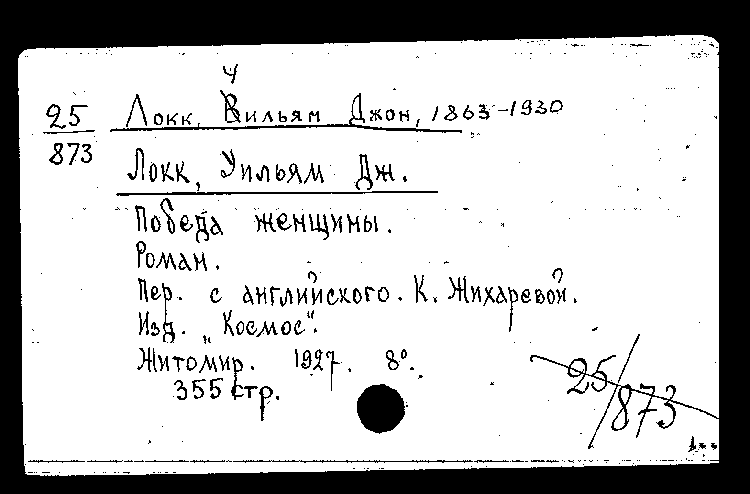 У
25 Локк, Вильям Джон, 1863-1930
873
Локк, Уильям Дж.
Победа женщины.
Роман.
Пер. с английского. К. Жихаревой.
Изд. „Космос".
Житомир. 1927. 8°.
355 стр.
25/873